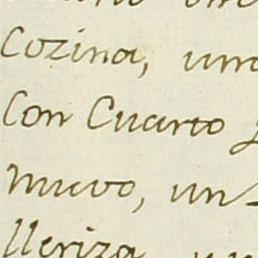 Cozina, una
Con Cuarto
nuevo, un
lleriza